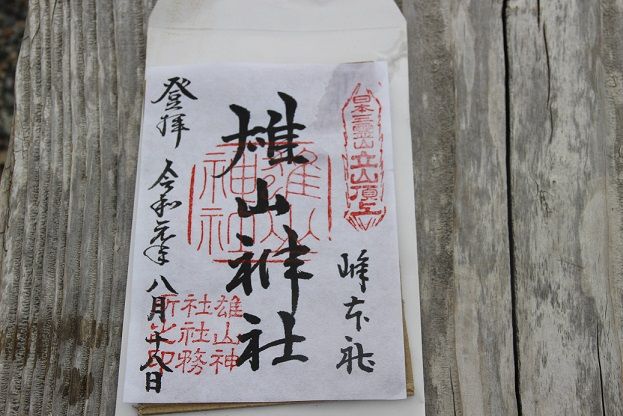 日本三霊山立山頂上
峰本社
雄山神社
雄山神社
雄山神
社社務
所之印
登拝 令和元年八月十八日